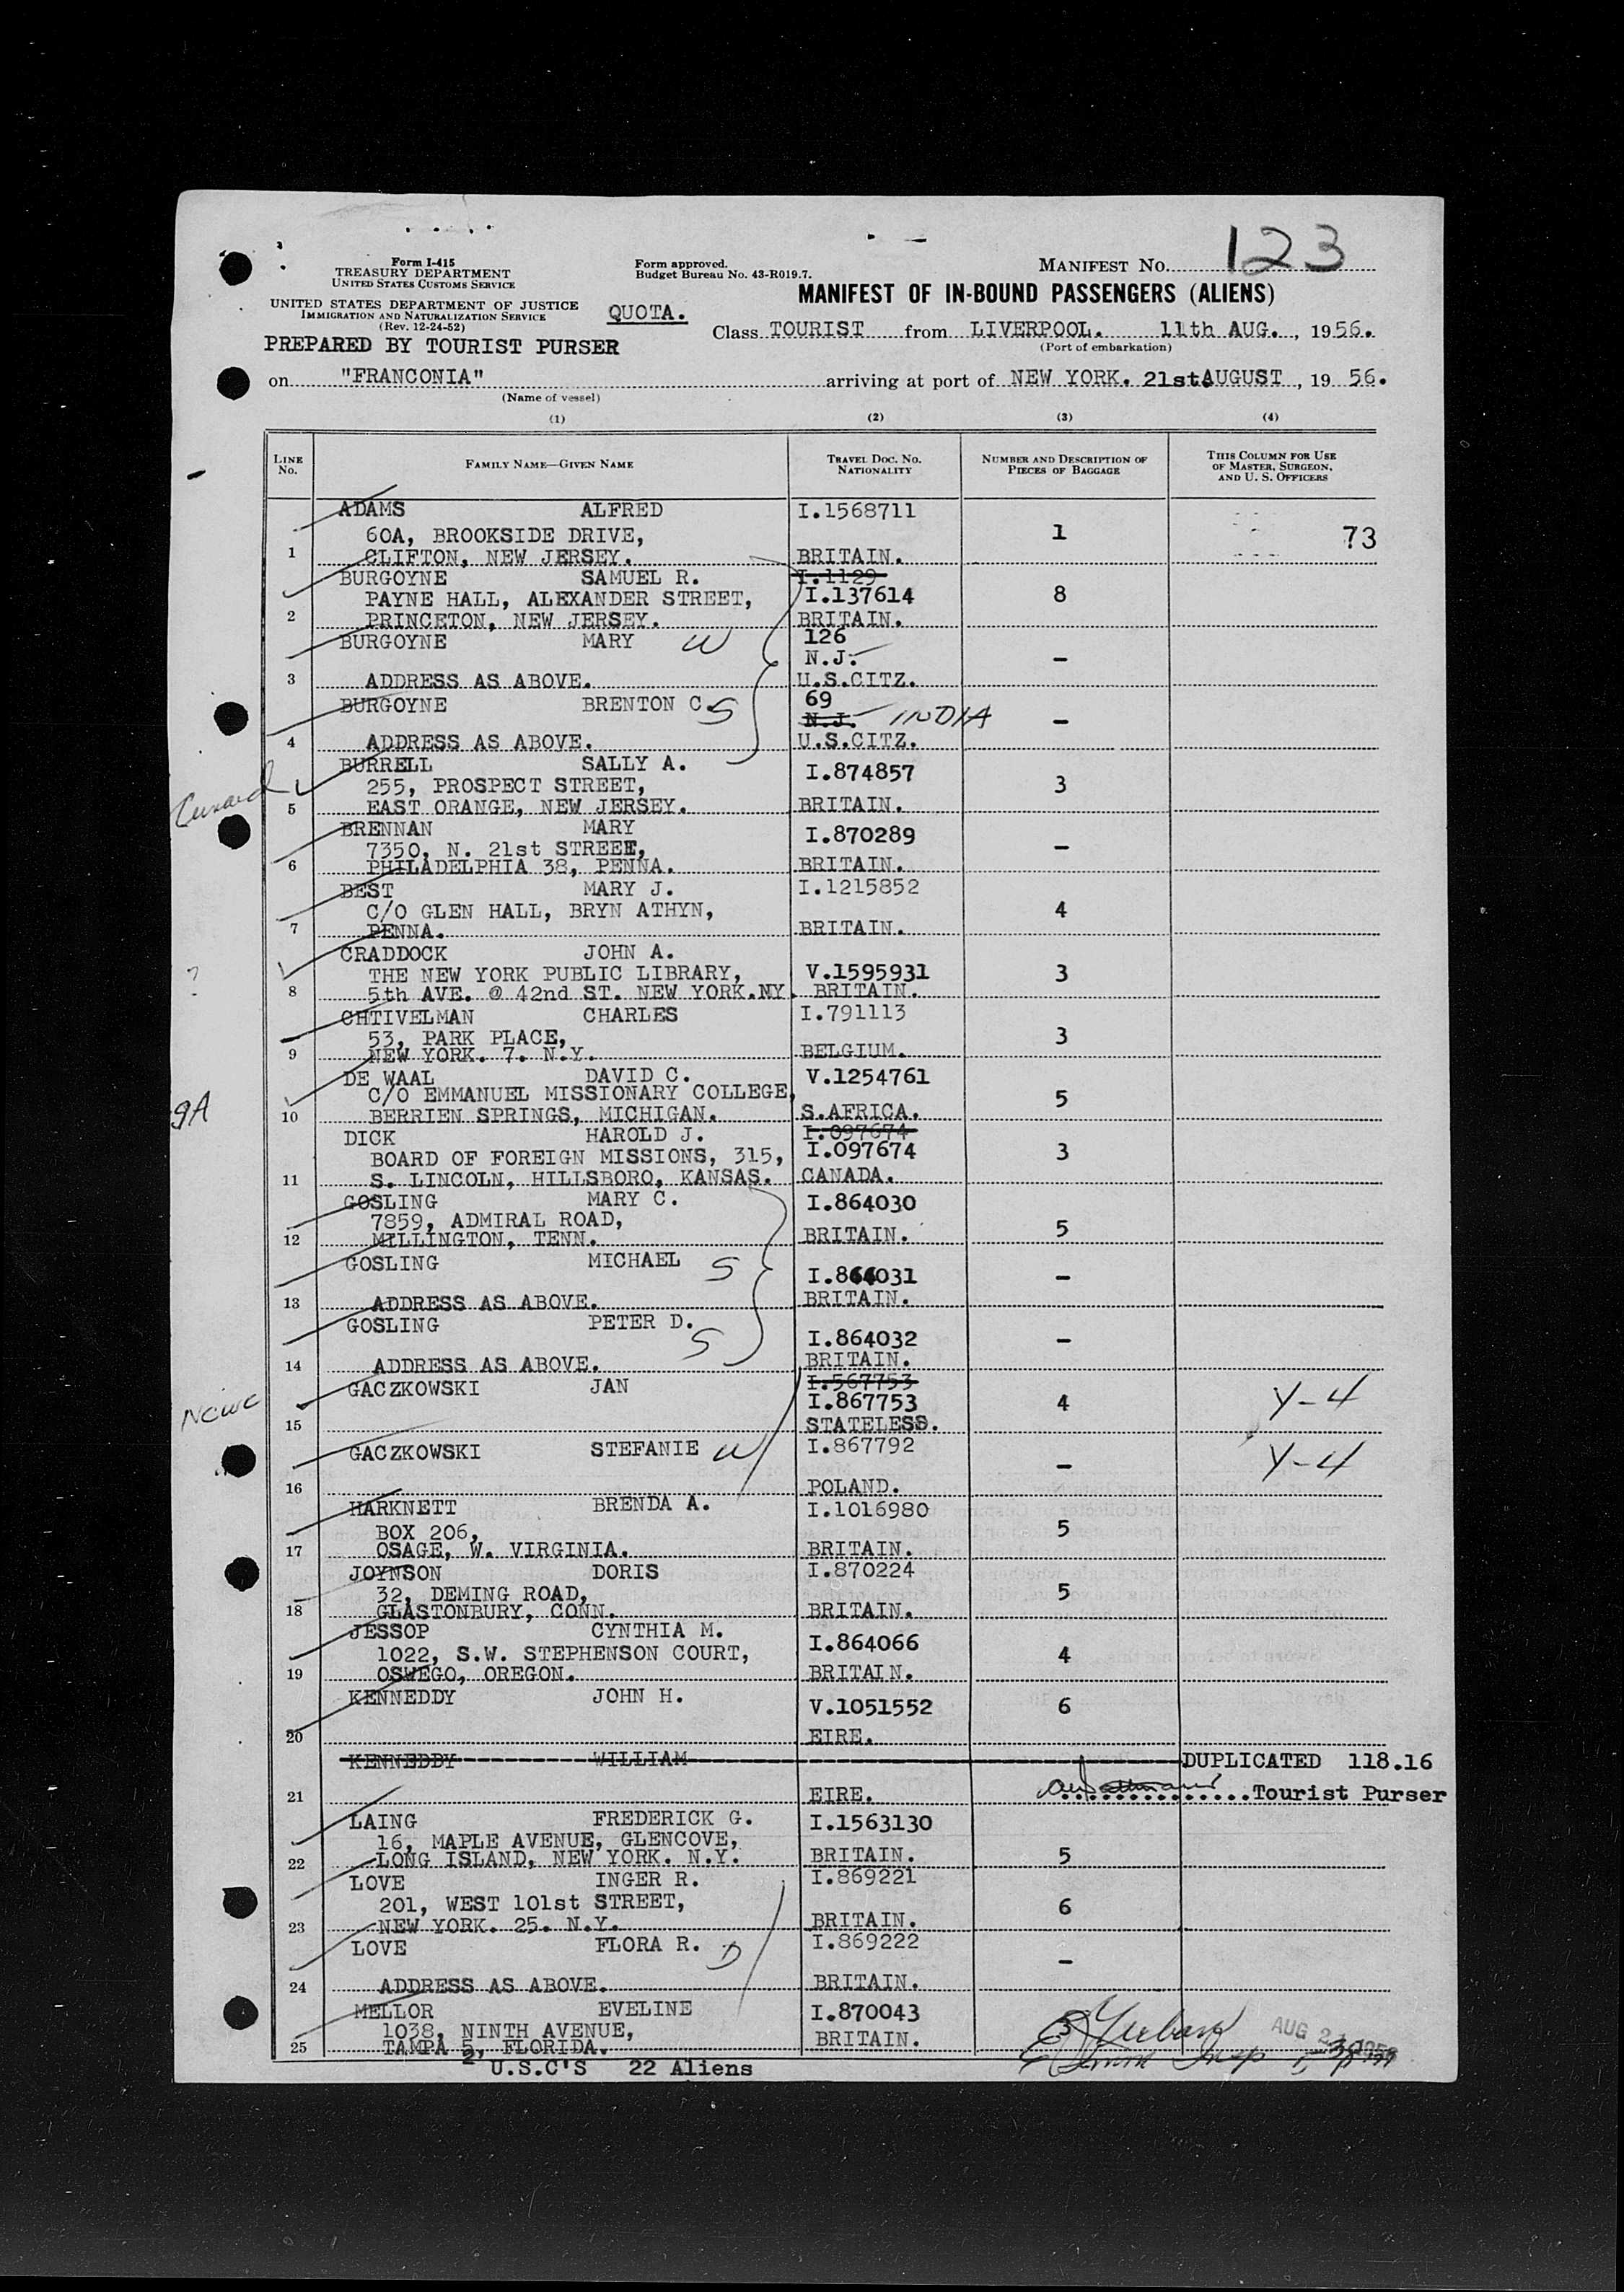 123
Form I-415
TREASURY DEPARTMENT
UNITED STATES CUSTOMS SERVICE
Form approved.
Budget Bureau No. 43-R019.7.
MANIFEST No.
UNITED STATES DEPARTMENT OF JUSTICE
IMMIGRATION AND NATURALIZATION SERVICE
(Rev. 12-24-52)
QUOTA.
MANIFEST OF IN-BOUND PASSENGERS (ALIENS)
Class TOURIST from LIVERPOOL. 11th AUG., 1956.
(Port of embarkation)
PREPARED BY TOURIST PURSER
on "FRANCONIA" arriving at port of NEW YORK. 21st AUGUST, 19 56.
(Name of vessel)
(1) (2) (3) (4)
LINE No. FAMILY NAME—GIVEN NAME TRAVEL DOC. NO. NATIONALITY NUMBER AND DESCRIPTION OF PIECES OF BAGGAGE THIS COLUMN FOR USE OF MASTER, SURGEON, AND U. S. OFFICERS
ADAMS ALFRED I.1568711
60A, BROOKSIDE DRIVE, 1 73
1 CLIFTON, NEW JERSEY. BRITAIN.
BURGOYNE SAMUEL R. I.1129
PAYNE HALL, ALEXANDER STREET, I.137614 8
2 PRINCETON, NEW JERSEY. BRITAIN.
BURGOYNE MARY W 126
N.J. –
3 ADDRESS AS ABOVE. U.S.CITZ.
BURGOYNE BRENTON C. S 69
N.J. INDIA –
4 ADDRESS AS ABOVE. U.S.CITZ.
BURRELL SALLY A. I.874857
Cunard 255, PROSPECT STREET, 3
5 EAST ORANGE, NEW JERSEY. BRITAIN.
BRENNAN MARY I.870289
7350, N. 21st STREET, –
6 PHILADELPHIA 38, PENNA. BRITAIN.
BEST MARY J. I.1215852
C/O GLEN HALL, BRYN ATHYN, 4
7 PENNA. BRITAIN.
CRADDOCK JOHN A.
? THE NEW YORK PUBLIC LIBRARY, V.1595931 3
8 5th AVE. @ 42nd ST. NEW YORK.NY. BRITAIN.
CHTIVELMAN CHARLES I.791113
53, PARK PLACE, 3
9 NEW YORK. 7. N.Y. BELGIUM.
DE WAAL DAVID C. V.1254761
C/O EMMANUEL MISSIONARY COLLEGE, 5
10 BERRIEN SPRINGS, MICHIGAN. S.AFRICA.
DICK HAROLD J. I.097674
BOARD OF FOREIGN MISSIONS, 315, I.097674 3
11 S. LINCOLN, HILLSBORO, KANSAS. CANADA.
GOSLING MARY C. I.864030
7859, ADMIRAL ROAD, 5
12 MILLINGTON, TENN. BRITAIN.
GOSLING MICHAEL S
I.864031 –
13 ADDRESS AS ABOVE. BRITAIN.
GOSLING PETER D. S
I.864032 –
14 ADDRESS AS ABOVE. BRITAIN.
GACZKOWSKI JAN I.567753
I.867753 4 Y-4
15 STATELESS.
GACZKOWSKI STEFANIE W I.867792
– Y-4
16 POLAND.
HARKNETT BRENDA A. I.1016980
BOX 206, 5
17 OSAGE, W. VIRGINIA. BRITAIN.
JOYNSON DORIS I.870224
32, DEMING ROAD, 5
18 GLASTONBURY, CONN. BRITAIN.
JESSOP CYNTHIA M. I.864066
1022, S.W. STEPHENSON COURT, 4
19 OSWEGO, OREGON. BRITAIN.
KENNEDDY JOHN H. V.1051552 6
20 EIRE.
KENNEDDY WILLIAM DUPLICATED 118.16
21 EIRE. Tourist Purser
LAING FREDERICK G. I.1563130
16, MAPLE AVENUE, GLENCOVE,
22 LONG ISLAND, NEW YORK. N.Y. BRITAIN. 5
LOVE INGER R. I.869221
201, WEST 101st STREET, 6
23 NEW YORK. 25. N.Y. BRITAIN.
LOVE FLORA R. D I.869222
–
24 ADDRESS AS ABOVE. BRITAIN.
MELLOR EVELINE I.870043
1038, NINTH AVENUE, BRITAIN.
25 TAMPA 5, FLORIDA.
2 U.S.C'S 22 Aliens
Imm Insp